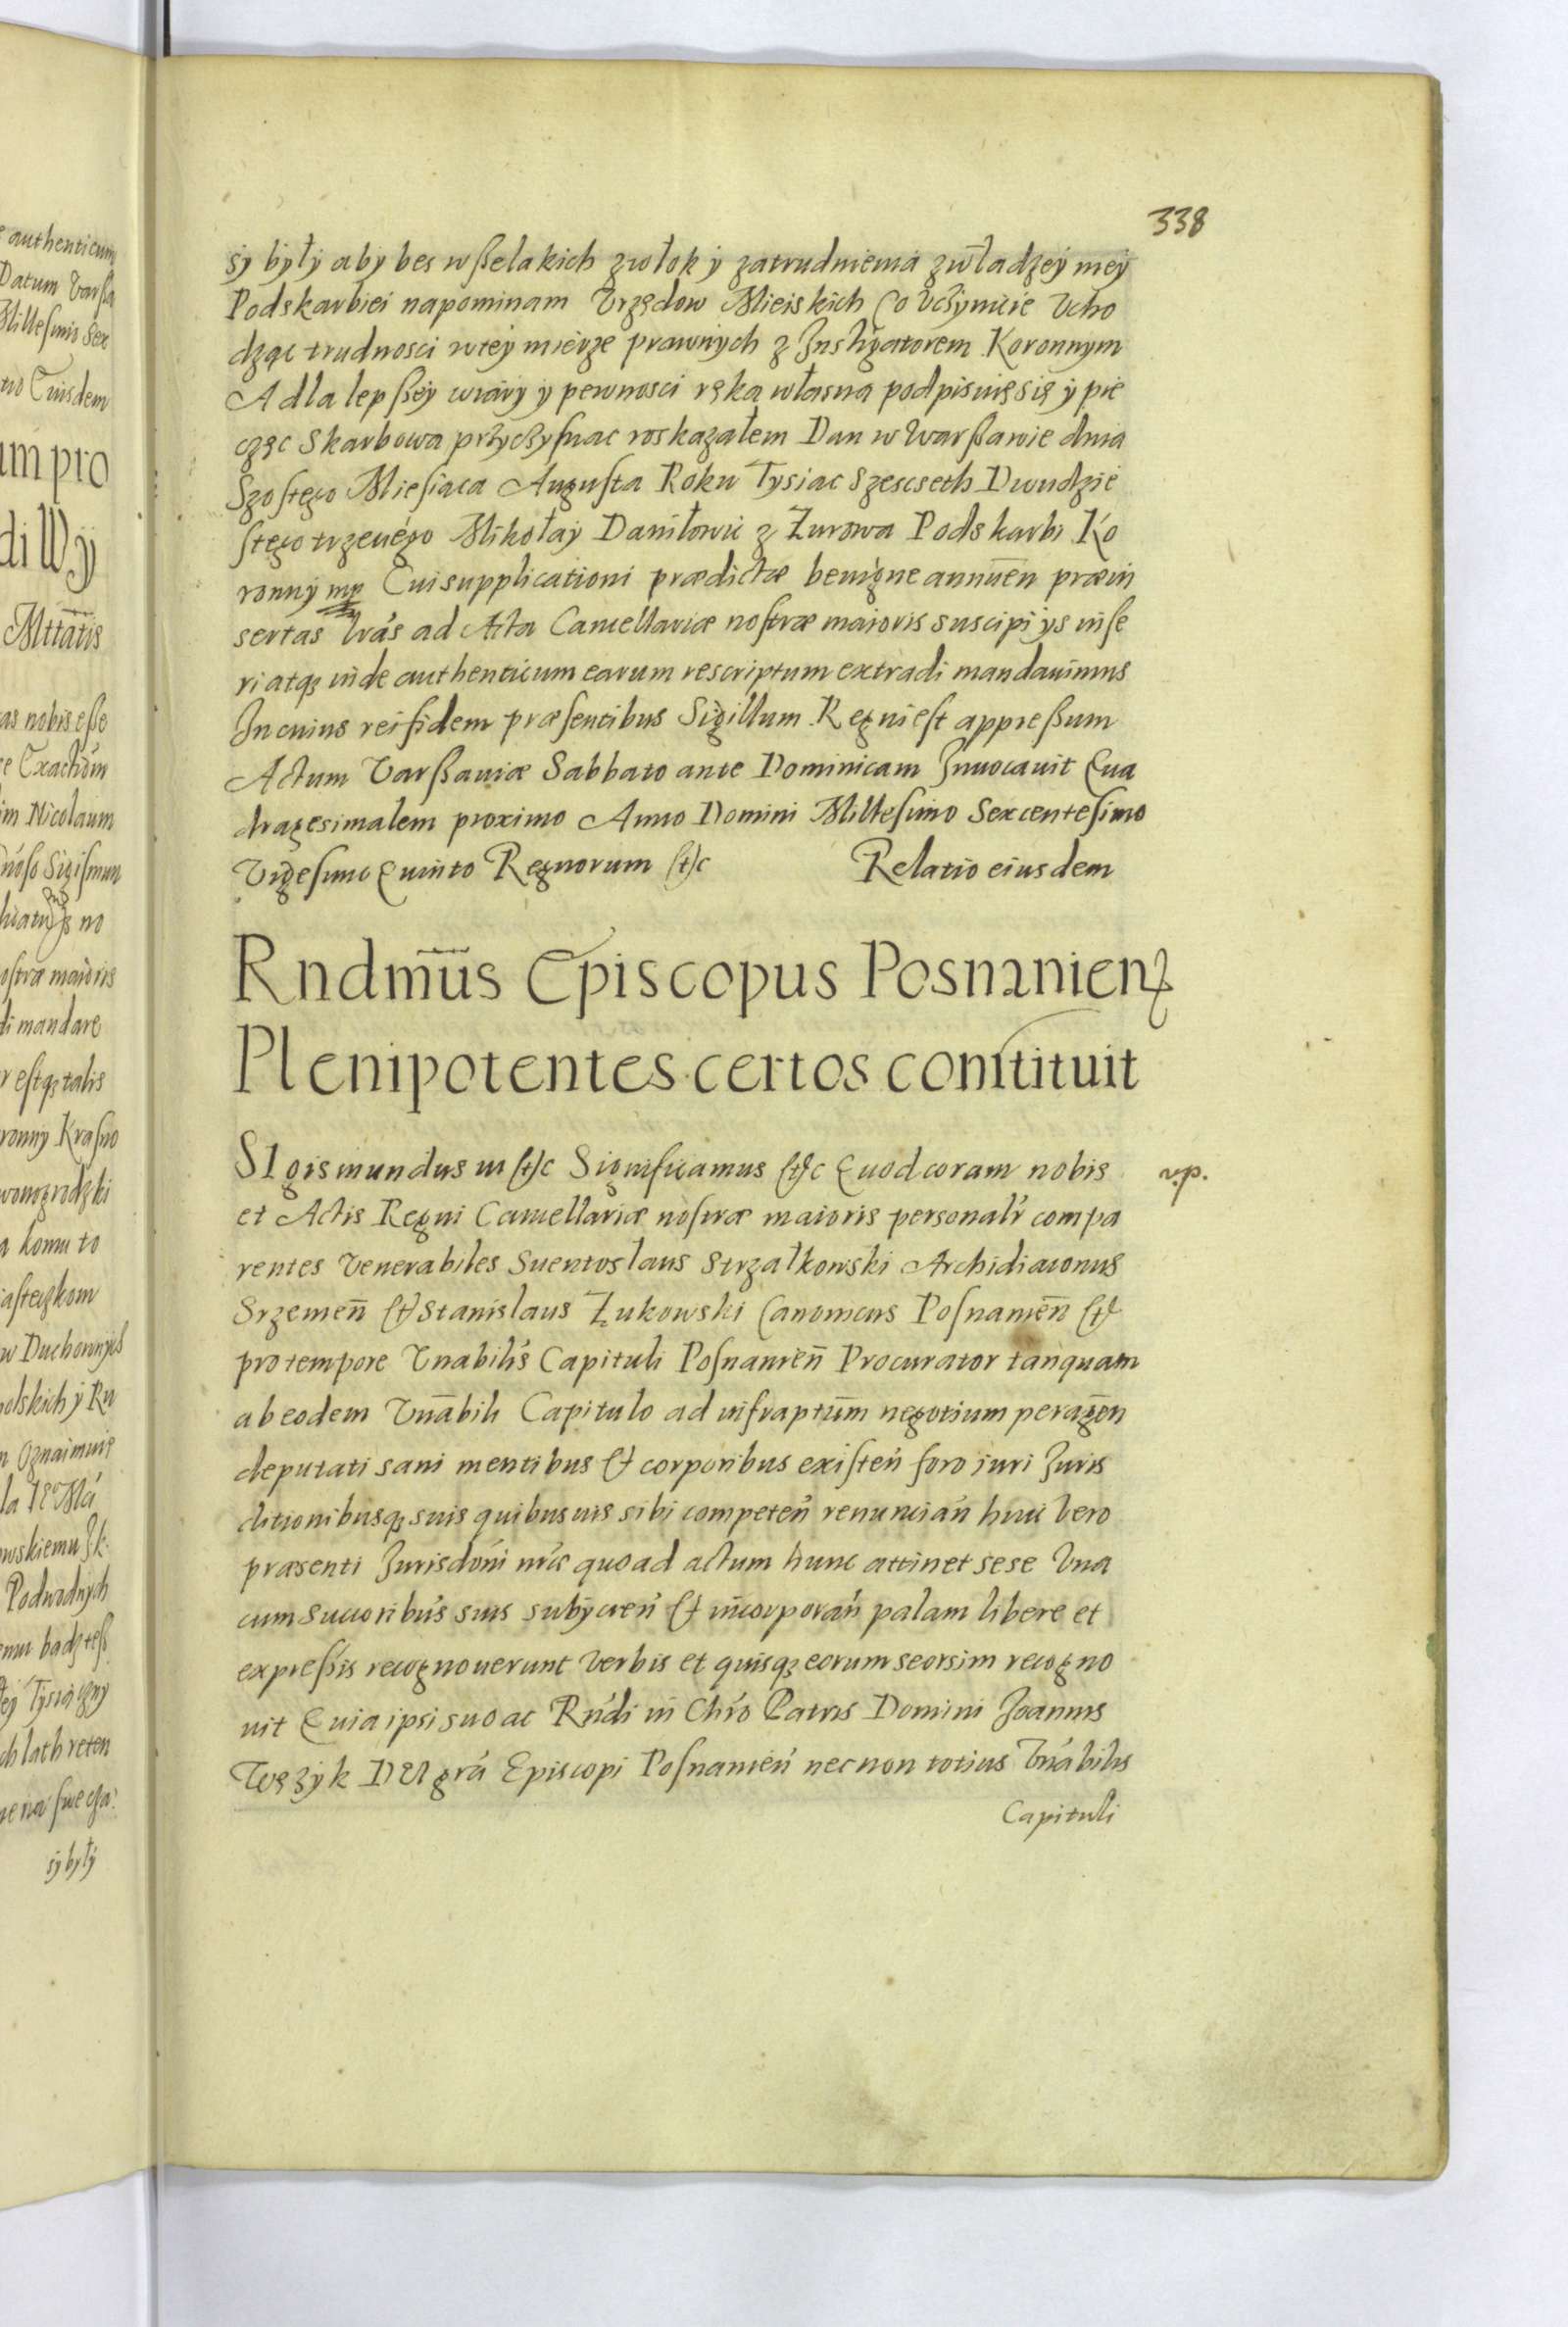 338
sy były aby bes wßelakich zwłok y zatrudnienia zwładzey mey
Podskarbiei napominam Vrzędow Mieiskich Co Vczynicie Vcho
dząc trudnosci wtey mierze prawnych z Instigatorem Koronnym
A dla lepßey wiary y pewnosci ręką własna podpisuięsię y pie
częc Skarbowa przyczysnac roskazałem Dan w Warßawie dnia
Szostego Miesiaca Augusta Roku Tysiac Szescseth Dwudzie
stego trzeciego Mikołay Daniłowic z Zurowa Podskarbi Ko
ronny mp Cui supplicationi prædictæ benigne annuen̄ præin
sertas lr̄as ad Acta Cancellariæ nostræ maioris suscipi ijs inse
ri atqȝ inde authenticum earum rescriptum extradi mandauimus
In cuius rei fidem præsentibus Sigillum Regni est appreßum
Actum Varßauiæ Sabbato ante Dominicam Inuocauit Qua
dragesimalem proximo Anno Domini Millesimo Sexcentesimo
Vigesimo Quinto Regnorum &c Relatio eiusdem
Rndm̄us Episcopus Posnanien
Plenipotentes certos constituit
SIgismundus III &c Significamus &c Quod coram nobis
v.p.
et Actis Regni Cancellariæ nostræ maioris personalr̄ compa
rentes Venerabiles Suentoslaus Strzałkowski Archidiaconus
Srzemen̄ & Stanislaus Zukowski Canonicus Posnanien̄ &
pro tempore Vnabilis Capituli Posnanien̄ Procurator tanquam
ab eodem Vnābili Capitulo ad infraptūm negotium peragen̄
deputati sani mentibus & corporibus existen̄ foro iuri Iuris
ditionibusqȝ suis quibusuis sibi competen̄ renuncian̄ huic vero
præsenti Iurisdōni nr̄æ quoad actum hunc attinet sese Vna
cum Succoribus suis subijcien̄ & incorporan̄ palam libere et
expreßis recognouerunt verbis et quisqȝ eorum seorsim recogno
uit Quia ipsi suo ac Rn̄di in Chr̄o Patris Domini Joannis
Węzyk DEI grā Episcopi Posnanien̄ nec non totius Vnābilis
Capituli